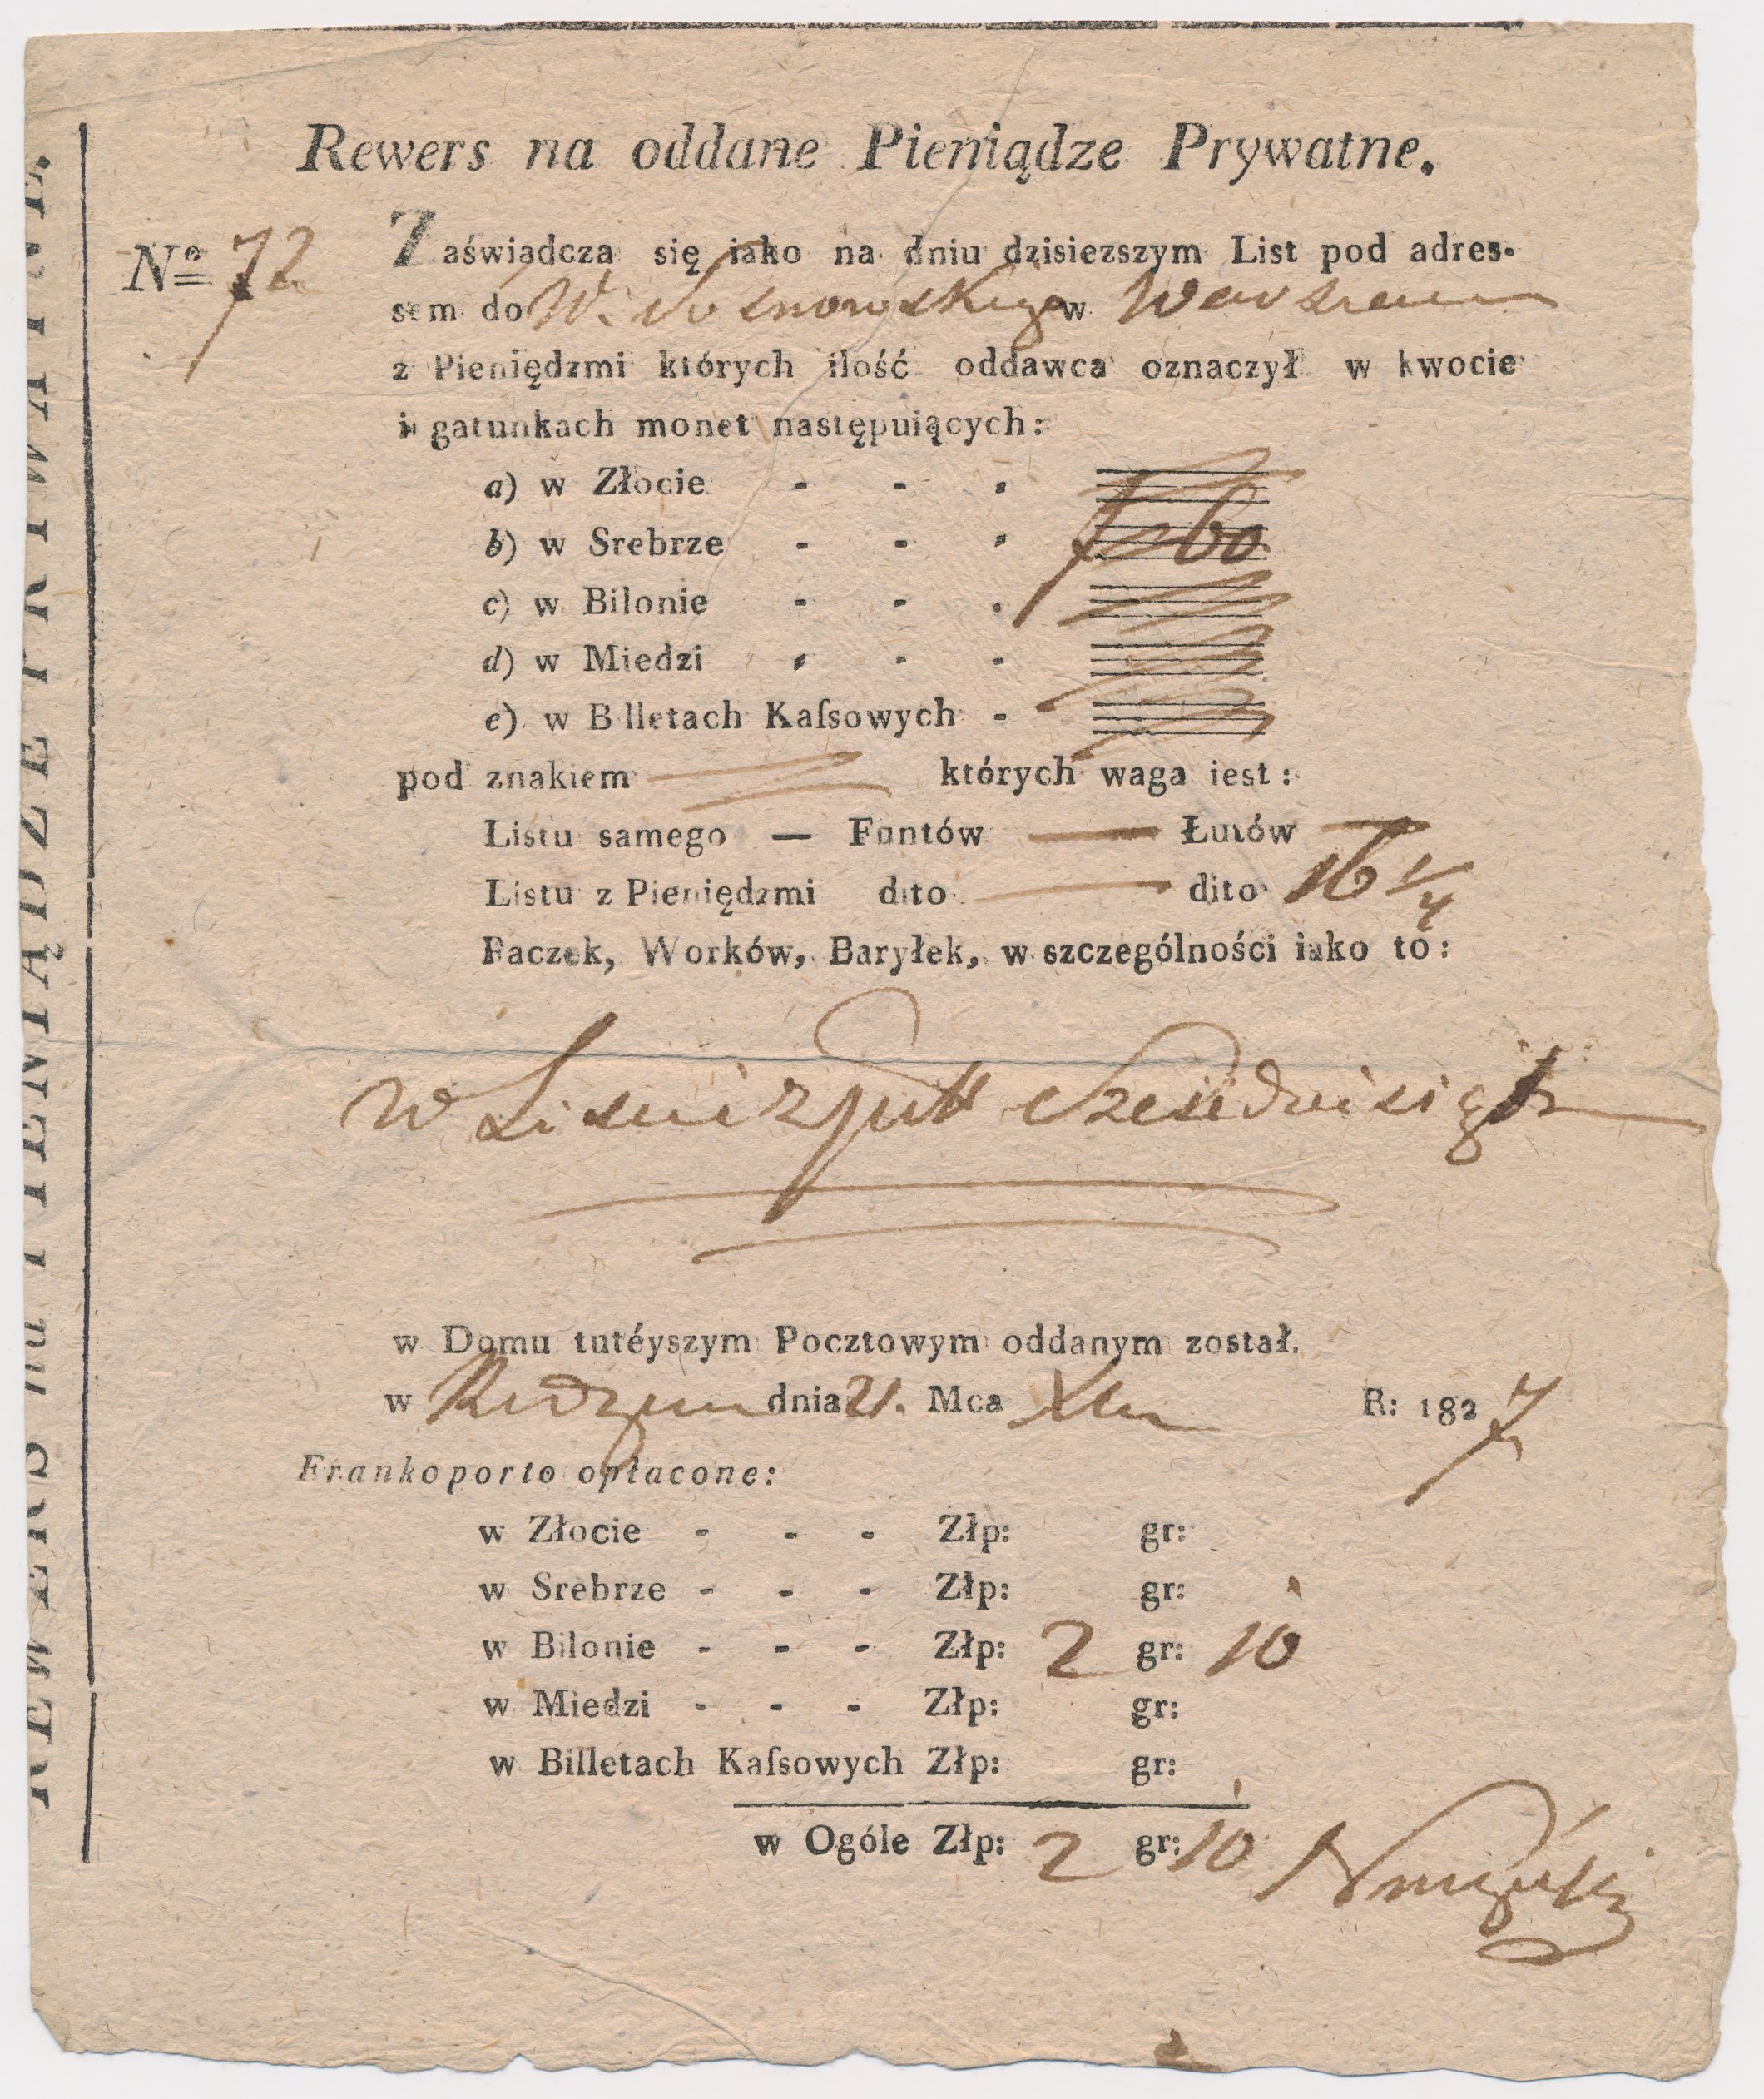 Rewers na oddane Pieniądze Prywatne.
No 72
Zaświadcza się iako na dniu dzisieższym List pod adres-
sem do W. Sosnowskiego w Warszawie
z Pieniędzmi których ilość oddawca oznaczył w kwocie
i gatunkach monet następuiących:
a) w Złocie - - -
b) w Srebrze - - - 60
c) w Bilonie - - -
d) w Miedzi - - -
e) w Billetach Kaſsowych -
pod znakiem których waga iest:
Listu samego — Funtów — Łutów —
Listu z Pieniędzmi dito — dito 16 1/4
Paczek, Worków, Baryłek, w szczególności iako to:
w Liscie Sześćdziesiąt
w Domu tutéyszym Pocztowym oddanym został.
w Radzyniu dnia 21. Mca R: 1827
Frankoporto opłacone:
w Złocie - - - Złp: gr:
w Srebrze - - - Złp: gr:
w Bilonie - - - Złp: 2 gr: 10
w Miedzi - - - Złp: gr:
w Billetach Kaſsowych Złp: gr:
w Ogóle Złp: 2 gr: 10
REWERS na PIENIĄDZE PRYWATNE.